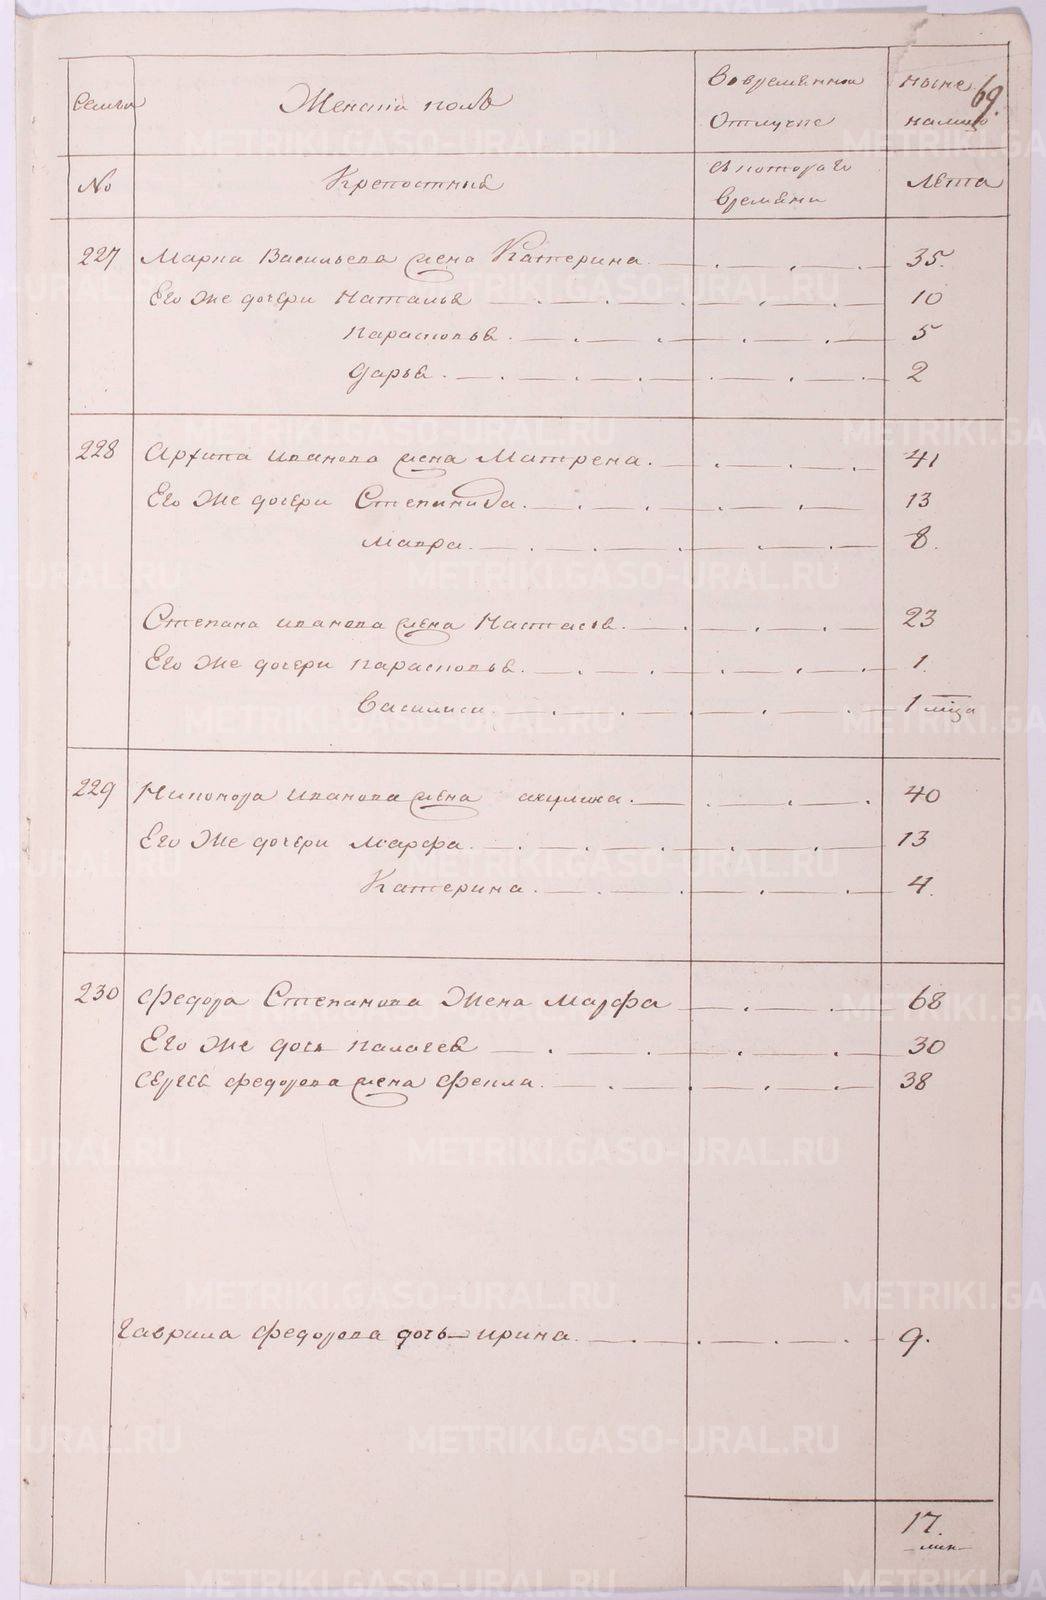 Семьи
Женский полъ
Во временной
отлучке
ныне
налицо
69.
No
Крепостныя
съ которого
времени
Лета
227 Марка Васильева жена Катерина 35.
Его же дочери Наталья 10
Парасковья 5
Дарья 2
228 Архипа Иванова жена Матрена 41
Его же дочери Степанида 13
Мавра 8.
Степана Иванова жена Настасья 23
Его же дочери Парасковья 1.
Василиса 1 мца
229 Никонора Иванова жена акулина 40
Его же дочери Марфа 13
Катерина 4.
230 Федора Степанова Жена Марфа 68
Его же дочь Палагея 30
Сергея Федорова жена Фекла 38
Гаврила Федорова дочь Ирина 9.
17.
METRIKI.GASO-URAL.RU